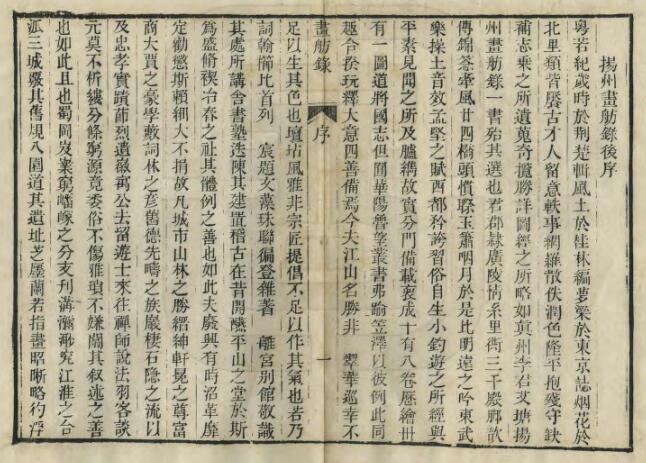 揚州畫舫錄後序
粵若紀歲時於荆楚輯風土於桂林編夢粱於東京誌烟花於
北里類皆歷古才人留意軼事網羅散佚潤色隆平抱殘守缺
補志乘之所遺蒐奇攬勝詳圖經之所略如眞州李君艾塘揚
州畫舫錄一書殆其選也君郡隸廣陵情系里衖三千殿腳飲
傳錦纜牽風廿四橋頭慣聆玉簫咽月於是比明遠之吟東武
樂操土音效孟堅之賦西都矜誇習俗自生小釣遊之所經與
平素見聞之所及臚摛故實分門備載裒成十有八卷歷繪卅
有一圖道將國志但團華陽魯望叢書弗踰笠澤以彼例此同
趣合揆玩繹大意四善備焉今夫江山名勝非 翠華巡幸不
畫舫錄 序 一
足以生其色也壇坫風雅非宗匠提倡不足以作其氣也若乃
詞翰備比首列 宸題文藻珠聯徧登雜著 離宮別館敬識
其處所講舍書塾迭陳其建置稽古在昔開醼平山之堂於斯
爲盛脩禊冶春之社其體例之善也如此夫廢興有時沿革靡
定勸懲斯賴細大不捐故凡城市山林之勝縉紳軒冕之尊富
商大賈之豪學藪詞林之彥舊德先疇之族巖棲石隐之流以
及忠孝實蹟節烈遺徽寓公去留遊士來往禪師說法羽客談
元莫不析縷分條窮源竟委俗不傷雅瑣不嫌闊其叙述之善
也如此且也蜀岡岌嶪窮蟠冢之分支邗溝瀰瀰究江淮之合
派三城嚴其舊規八園道其遺址芝廛蘭若指畫昭晰略彴浮